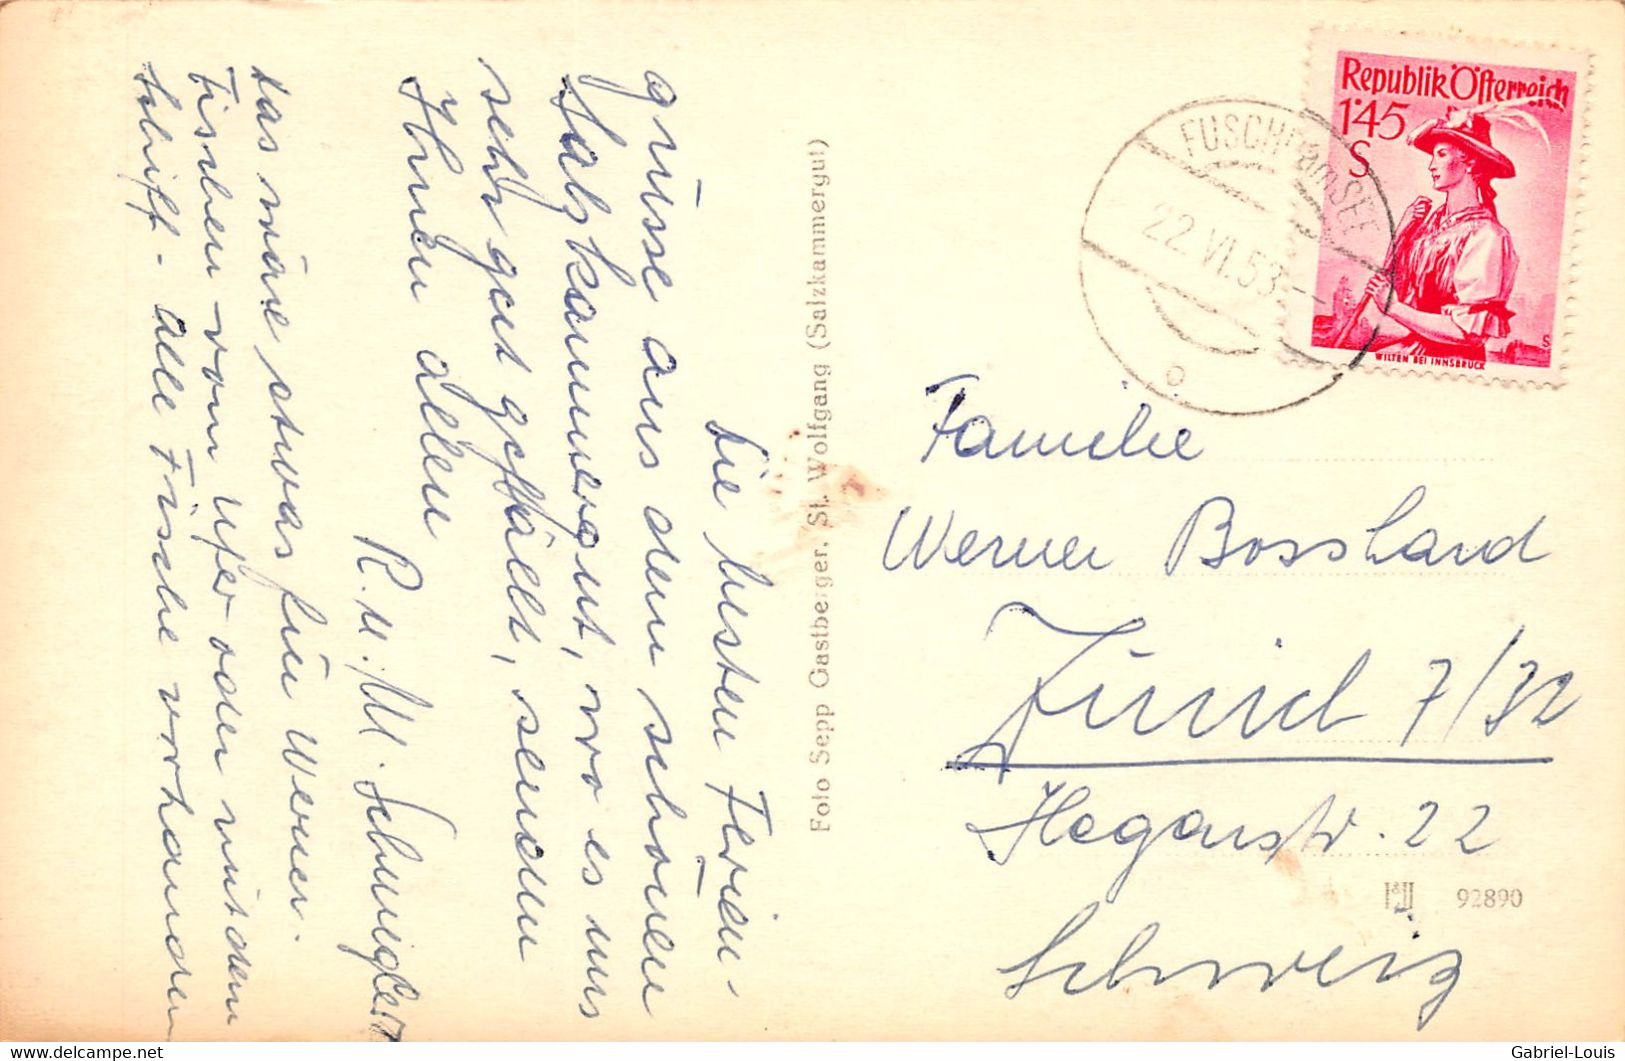 Die besten Ferien-
grüsse aus dem schönen
Salzkammergut, wo es uns
sehr gut gefällt, senden
Ihnen allen
R. u. M. Schmigler
das wäre etwas für Werner.
Fischen vom Ufer oder mit dem
Schiff - alle Fische vorhanden
Foto Sepp Gastberger, St. Wolfgang (Salzkammergut)
Republik Österreich
1'45
S
WILTEN BEI INNSBRUCK
S
FUSCHL am SEE
22.VI.53
Familie
Werner Bosshard
Zürich 7/32
Hegarstr. 22
Schweiz
92890
delcampe.net
Gabriel-Louis